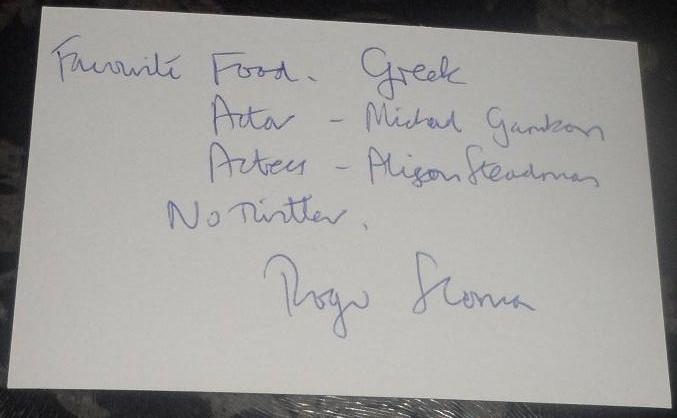 Favourite Food. Greek
Actor - Michael Gambon
Actress - Alison Steadman
No Twitter.
Roger Sloman